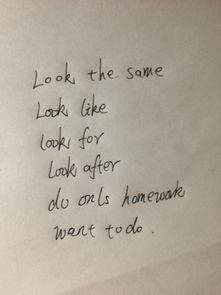 Look the same
Look like
look for
Look after
do onls homewoak
want to do.